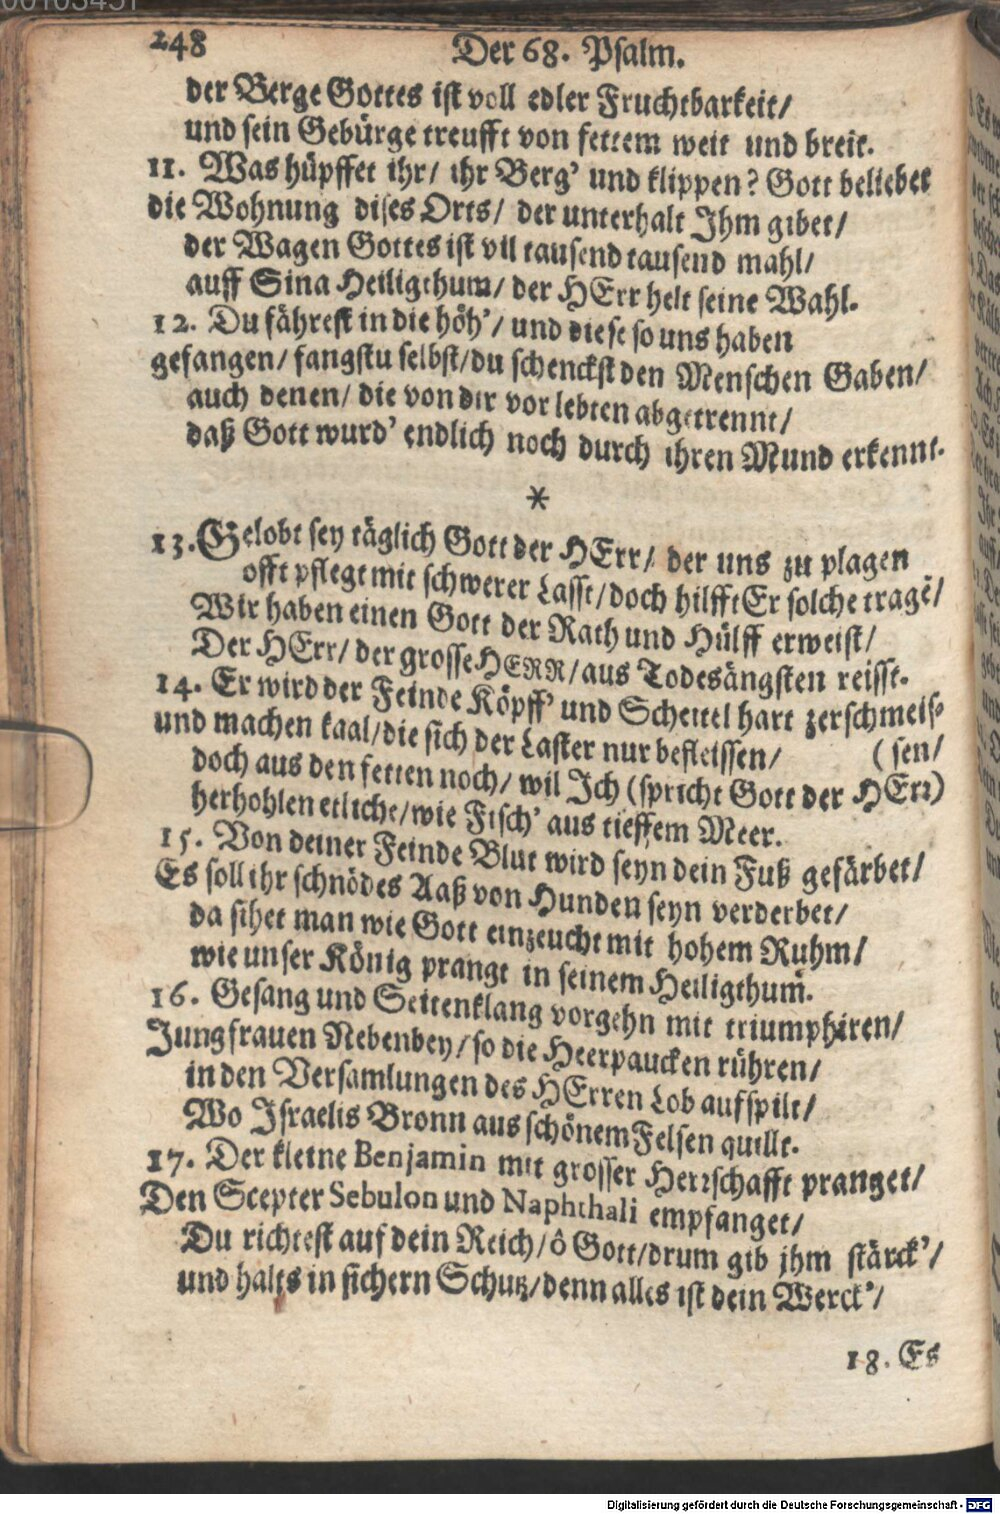 248 Der 68. Psalm.
der Berge Gottes ist voll edler Fruchtbarkeit/
und sein Gebürge treufft von fettem weit und breit.
11. Was hüpffet ihr/ ihr Berg' und klippen? Gott beliebet
die Wohnung dises Orts/ der unterhalt Ihm gibet/
der Wagen Gottes ist vil tausend tausend mahl/
auff Sina Heiligthum/ der HErr helt seine Wahl.
12. Du fährest in die höh'/ und diese so uns haben
gefangen/ fangstu selbst/ du schenckst den Menschen Gaben/
auch denen/ die von dir vor lebten abgetrennt/
daß Gott wurd' endlich noch durch ihren Mund erkennt.
*
13. Gelobt sey täglich Gott der HErr/ der uns zu plagen
offt pflegt mit schwerer Lasst/ doch hilfft Er solche tragē/
Wir haben einen Gott der Rath und Hülff erweist/
Der HErr/ der grosse HERR/ aus Todesängsten reisst.
14. Er wird der Feinde Köpff' und Scheitel hart zerschmeis-
und machen kaal/ die sich der Laster nur befleissen/ (sen/
doch aus den fetten noch/ wil Ich (spricht Gott der HErr)
herhohlen etliche/ wie Fisch' aus tieffem Meer.
15. Von deiner Feinde Blut wird seyn dein Fuß gefärbet/
Es soll ihr schnödes Aaß von Hunden seyn verderbet/
da sihet man wie Gott einzeucht mit hohem Ruhm/
wie unser König prangt in seinem Heiligthum.
16. Gesang und Seitenklang vorgehn mit triumphiren/
Jungfrauen Nebenbey/ so die Heerpaucken rühren/
in den Versamlungen des HErren Lob aufspilt/
Wo Israelis Bronn aus schönem Felsen quillt.
17. Der kleine Benjamin mit grosser Herrschafft pranget/
Den Scepter Sebulon und Naphthali empfanget/
Du richtest auf dein Reich/ ô Gott/ drum gib jhm stärck'/
und halts in sichern Schutz/ denn alles ist dein Werck'/
18. Es
Digitalisierung gefördert durch die Deutsche Forschungsgemeinschaft - DFG